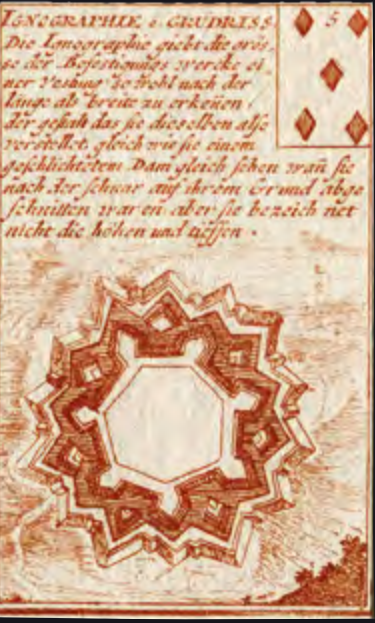 IGNOGRAPHIE ò GRUDRISS. 5
Die Ignographie giebt die grös,
se der Befestigungs wercke ei,
ner Vestung so wohl nach der
länge als breite zu erkeñen,
der gestalt das sie dieselben also
vorstellet, gleich wie sie einem
geschlichtetem Dam gleich sehen wañ sie
nach der schnur auf ihrem Grund abge
schnitten waren aber sie bezeich net
nicht die höhen und tieffen.